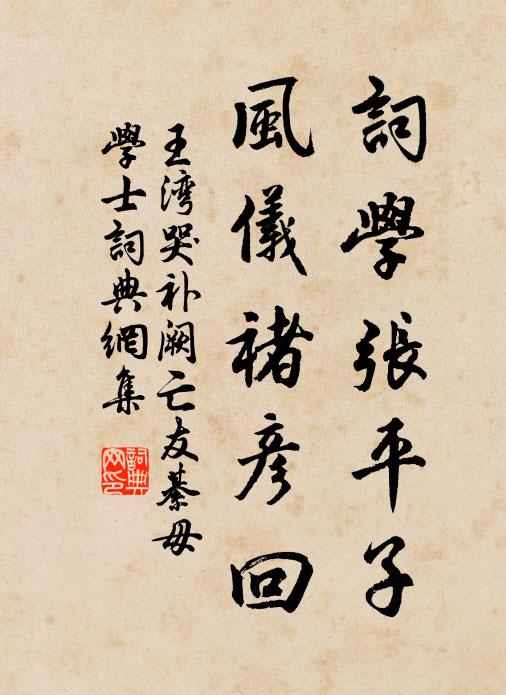 詞學張平子
風儀褚彥回
王湾哭补阙亡友綦毋
學士詞典網集
詞典网印